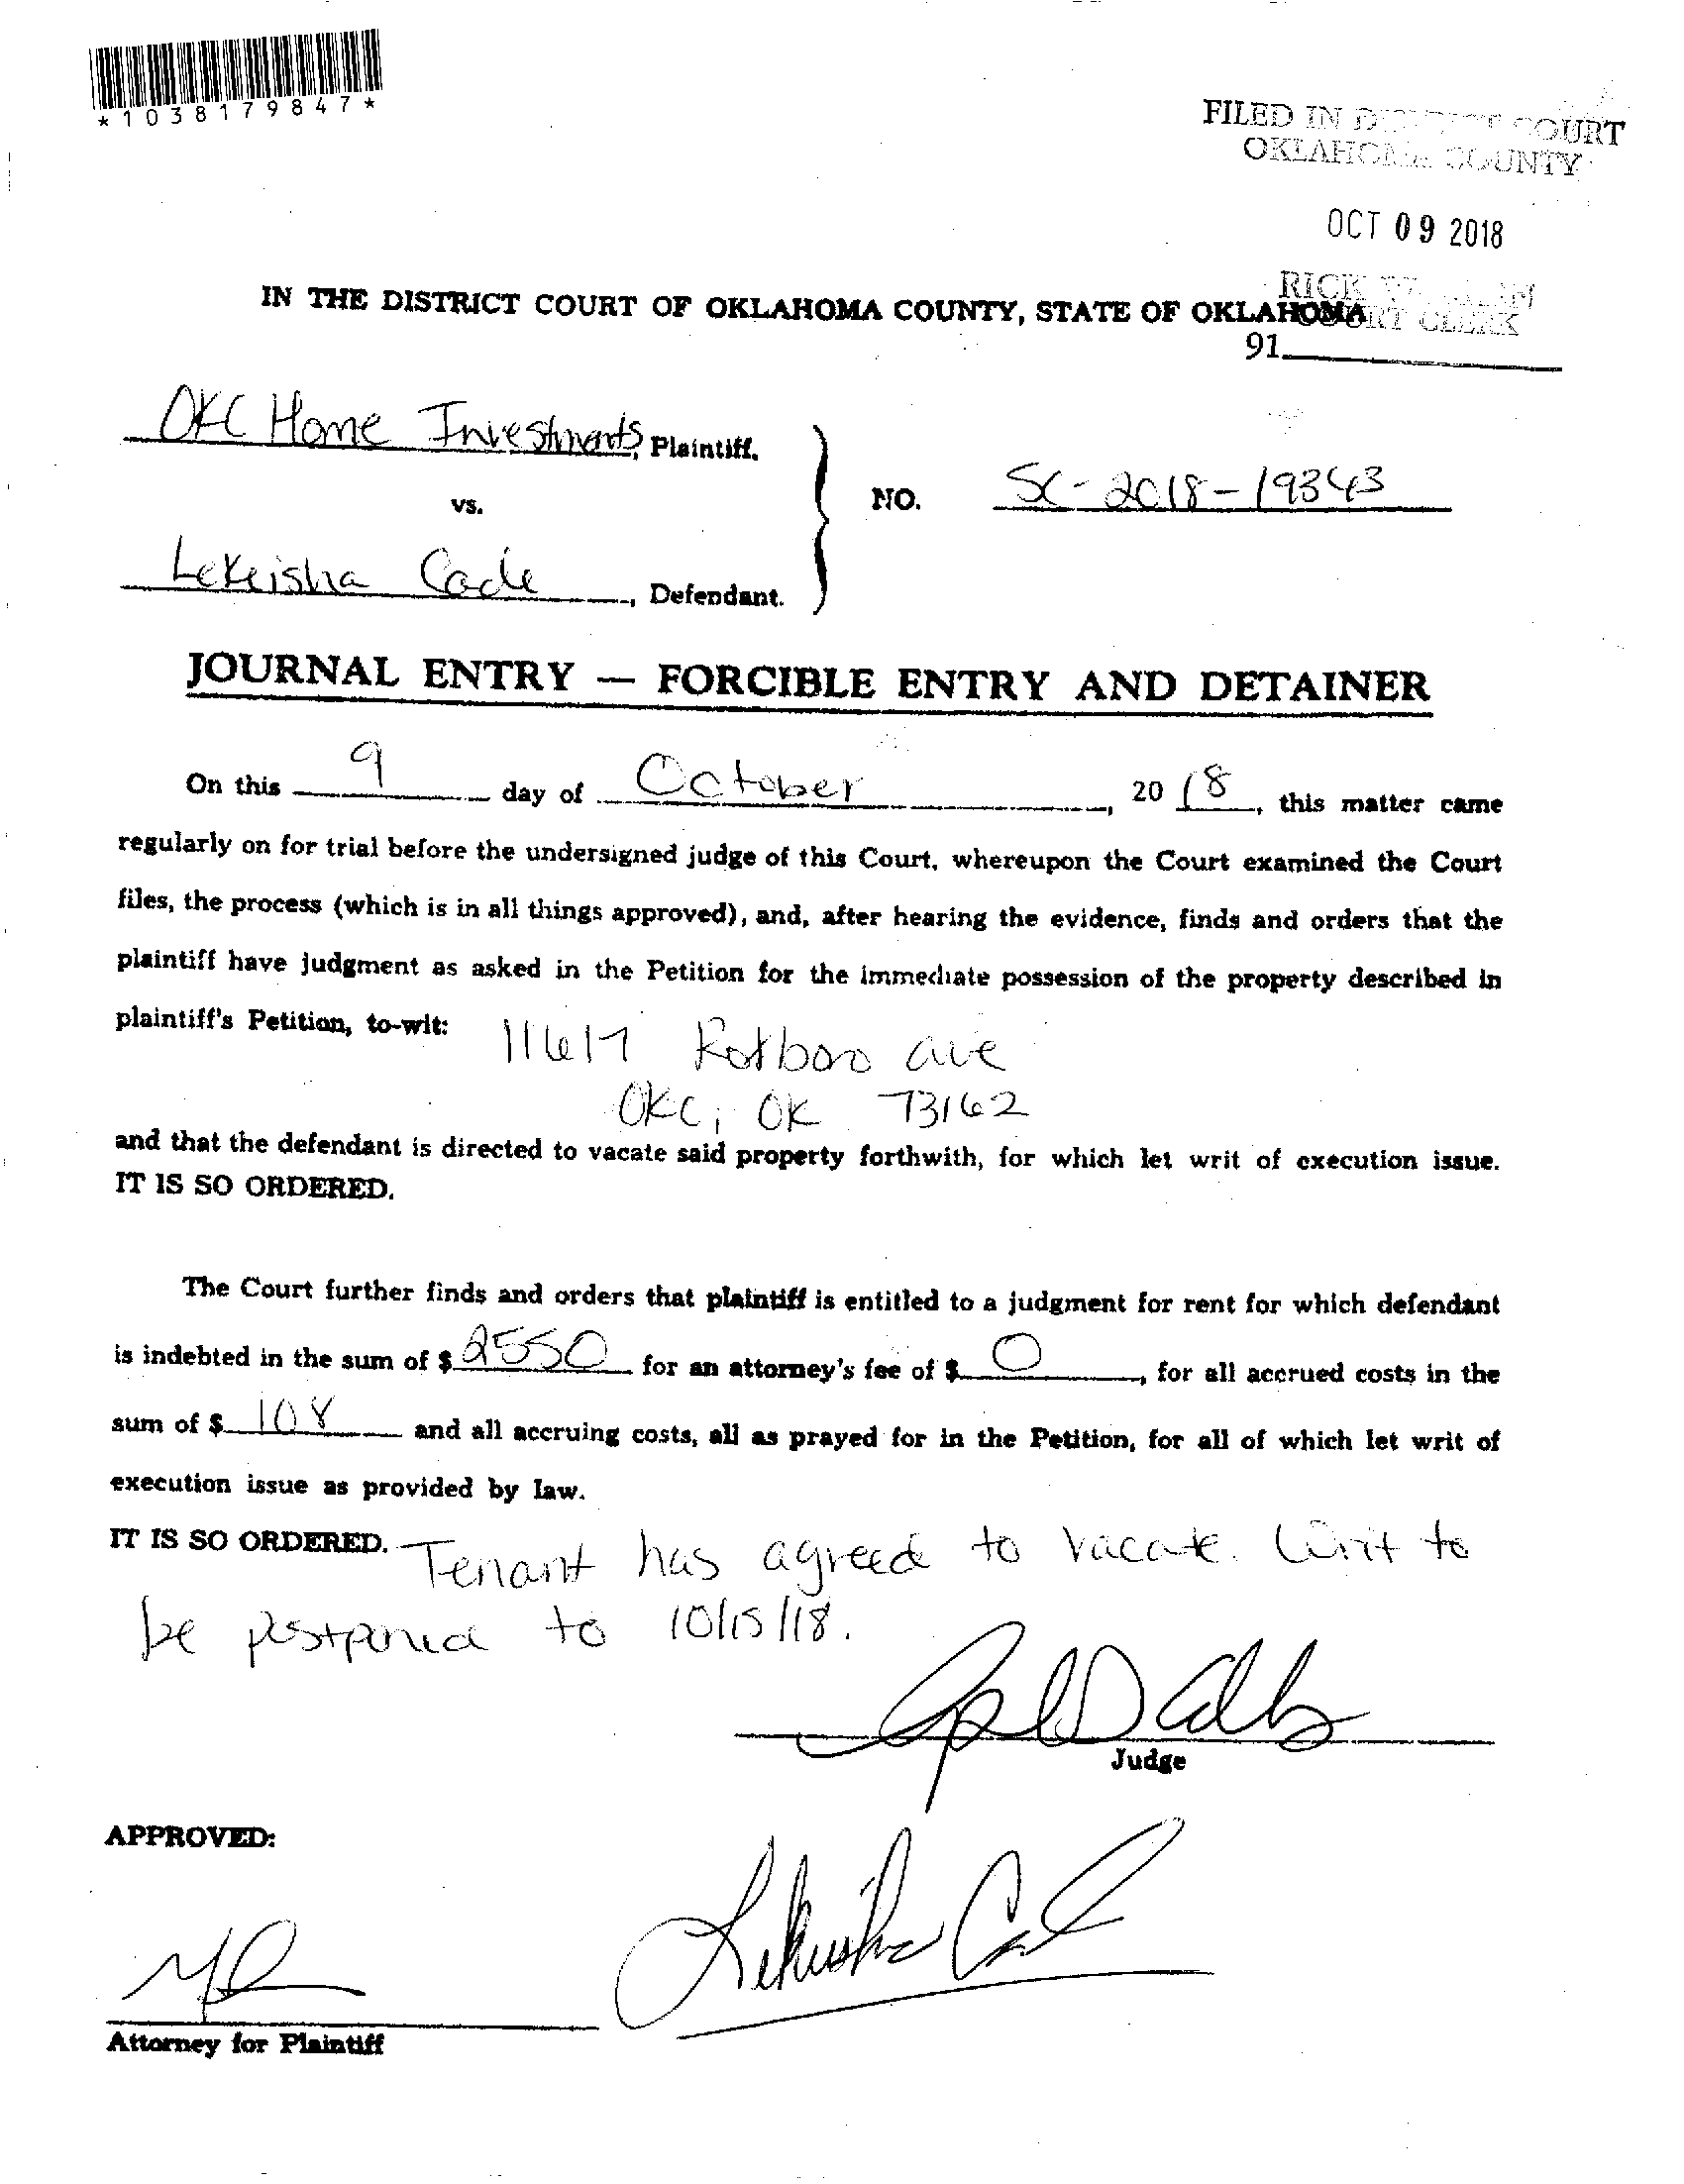 *1038179847*
FILED IN DISTRICT COURT
OKLAHOMA COUNTY
OCT 09 2018
RICK
COURT CLERK
IN THE DISTRICT COURT OF OKLAHOMA COUNTY, STATE OF OKLAHOMA
91
OKC Home Investments, Plaintiff.
vs.
NO. SC-2018-19343
Lekeisha Cade, Defendant.
JOURNAL ENTRY — FORCIBLE ENTRY AND DETAINER
On this 9 day of October, 2018, this matter came
regularly on for trial before the undersigned judge of this Court, whereupon the Court examined the Court
files, the process (which is in all things approved), and, after hearing the evidence, finds and orders that the
plaintiff have judgment as asked in the Petition for the immediate possession of the property described in
plaintiff's Petition, to-wit: 11617 ave
OKC, OK 73162
and that the defendant is directed to vacate said property forthwith, for which let writ of execution issue.
IT IS SO ORDERED.
The Court further finds and orders that plaintiff is entitled to a judgment for rent for which defendant
is indebted in the sum of $ 2550 for an attorney's fee of $ 0, for all accrued costs in the
sum of $ 108 and all accruing costs, all as prayed for in the Petition, for all of which let writ of
execution issue as provided by law.
IT IS SO ORDERED. Tenant has agreed to vacate. Writ to
be postponed to 10/15/18.
Judge
APPROVED:
Lekeisha Cade
Attorney for Plaintiff